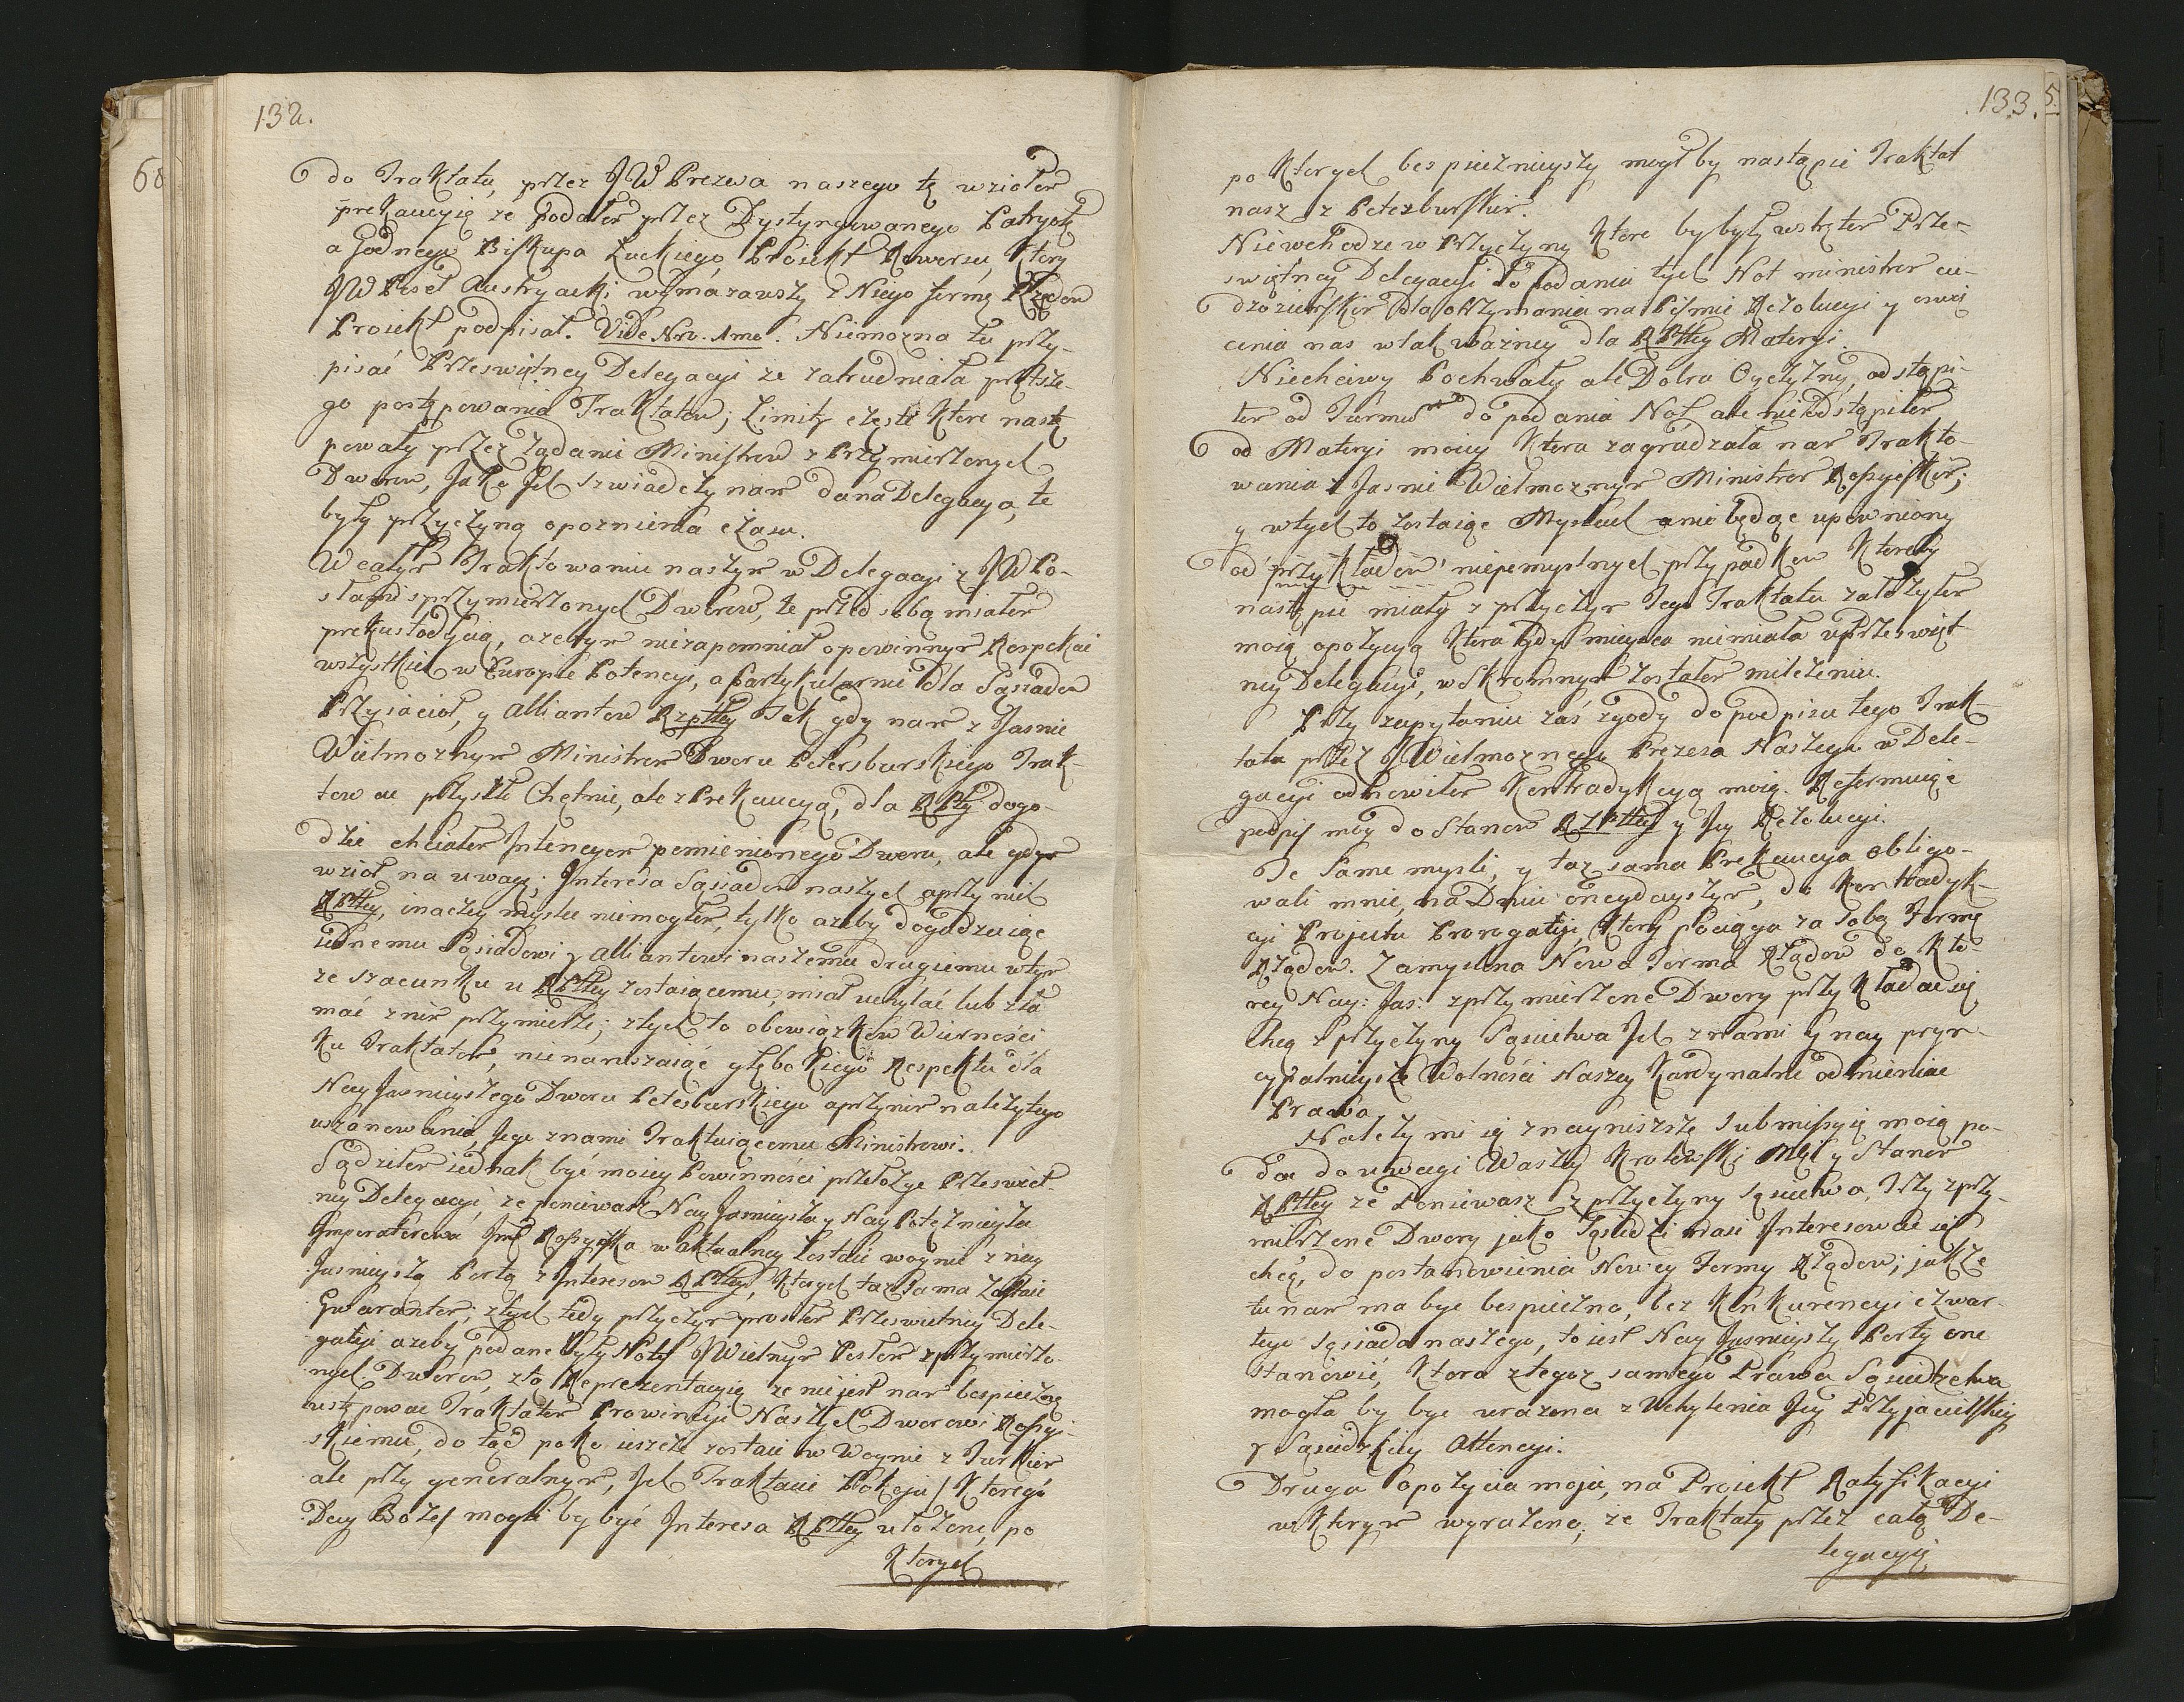 132.
do Traktatu, przez JW Prezesa naszego tę wziołem
prekaucyię że podałem przez Dystyngwowanego Patryotę
a Godnego Biskupa Łuckiego, Proiekt Rewersu, ktory
JW Poseł Austryacki wymazawszy z Niego formę Rządow
Proiekt podpisał. Vide Nro. 1mo. Niemozna tu przy-
pisać Przeświętney Delegacyi ze zatrudniała prętsze-
go postępowania Traktatow; Limity częste ktore nastę
powały przez Ządanie Ministrow z Przymierzonych
Dworow, Jako Jch Szwiadczy nam dana Delegacya, te
były przyczyną opoznienia czasu.
W całym Traktowaniu naszym w Delegacyi z JWPo-
słami sprzymierzonych Dworow, te przed sobą miałem
prekustodycią, azebym niezapomniał o powinnym Respekcie
wszystkich w Europie Potencyi, a partykularnie dla Sąsiadow
Przyiacioł, y Alliantow Rzpltey Tak gdy nam z Jasnie
Wielmoznym Ministrem Dworu Petersburskiego Trak-
towac przyszło Chętnie, ale z Prekaucyą, dla RPlty dogo-
dzic chciałem Intencyom pomienionego Dworu, ale gdym
wzioł na uwagę; Interesa Sąsiadow naszych a przy nich
RPltey, inaczey myslec niemogłem, tylko azeby dogadzaiąc
iednemu Sąsiadowi y Alliantowi naszemu drugiemu w tym
ze szacunku u RPltey zostaiącemu, miał uchylać lub zła
mać z nim przymierze; z tych to obowiązkow Wierności
ku Traktatom, nienaruszaiąc głębokiego Respektu dla
Nay Jasnieyszego Dworu Petesburskiego a przy nim nalezytego
uszanowania, Jego z nami Traktuiącemu Ministrowi.
Sądziłem iednak być moiey Powinności przełozyc Prześwięt
ney Delegacyi, ze poniewasz Nay Jasnieysza y Nay Potęznieysza
Imperatorowa Jmć Rossyiska w aktualney zostaie woynie z nay
Jasnieyszą Portą z Interesow RPltey, ktorych taz sama Zostaie
Gwarantem; z tych tedy przyczyn prosiłem Prześwietney Dele-
gacyi azeby podane były Noty JWielnym Posłom z przymierzo-
nych Dworow, z tą Reprezentacyią ze nie jest nam bespieczno
ustępować Traktatem Prowincye Naszych Dworowi Rossyi-
skiemu, do tąd poko ieszcze zostaie w Woynie z Turkiem
ale przy generalnym, Jch Traktacie Pokoju / ktorego
Day Boze / mogli by być Interesa RPltey ułozone, po
ktorych
133.
po ktorych bespiecznieyszy mogł by nastąpic Traktat
nasz z Petezburskim.
Niewchodze w Przyczyny ktore by były wstrętem Prze-
swiętney Delegacyi do podania tych Not ministrom cu-
dzoziemskim dla otrzymania na Pismie Rezolucyi y oswie
cenia nas w tak wazney dla RPltey Materyi.
Niechciwy Pochwały ale Dobra Oyczyzny, odstąpi-
łem od Turnus do podania Not ale nie odstąpiłem
od Materyi moiey ktora zagradzała nam Trakto-
wania z Jasnie Wielmoznym Ministrem Rossyiskim;
y w tych to zostaiąc Myslach a nie będąc upewniony
od przykładow niepomyslnych przypadkow ktoreby
nastąpic miały z przyczyn Tego Traktatu załozyłem
moią opozycyą ktora gdy mieysca nie miała u Prześwięt
ney Delegacyi, w Skromnym zostałem milczeniu.
Przy zapytaniu zaś zgody do podpisu tego Trak-
tatu przez JWielmoznego Prezesa Naszego w Dele-
gacyi odnowiłem Kontradykcyą moię. Reformuiąc
podpis moy do Stanow RzPltey y Jey Rezolucyi.
Te Same mysli, y taz sama Prekaucya obligo-
wali mnie, na Dniu onegdayszym, do Kontradyk-
cyi Projektu Prorogacyi, ktory pociąga za sobą Formę
Rządow. Zamyslona Nowa Forma Rządow do kto-
rey Nay: Jas: z przymierzone Dwory przykładac się
chcą z przyczyny Sąsiectwa Jch z nami y nay pryn-
cypalnieysze Wolności Naszey Kardynalne odmieniac
Prawa.
Nalezy mi się z nayniszszą Submissyią moią po-
dac do uwagi Waszey Krolewski Mci y Stanom
RPltey ze Poniewasz z przyczyny sąsiectwa, Trzy z przy-
mierzone Dwory jako Sąsiedzi nasi Interesowac się
chcą, do postanowienia Nowey Formy Rządow; jakze
tu nam ma byc bespieczno, bez Konkurencyi czwar-
tego sąsiada naszego, to iest Nay Jasnieyszy Porty one
stanowić, ktora z tegoz samego Prawa Sąsiedztwa
mogła by byc urazona z Uchylenia Jey Przyjacielskiey
y Sąsiedzkiey Attencyi.
Druga opozycia moja, na Proiekt Ratyfikacyi
w ktorym wyrazono, ze Traktaty przez całą De-
legacyią